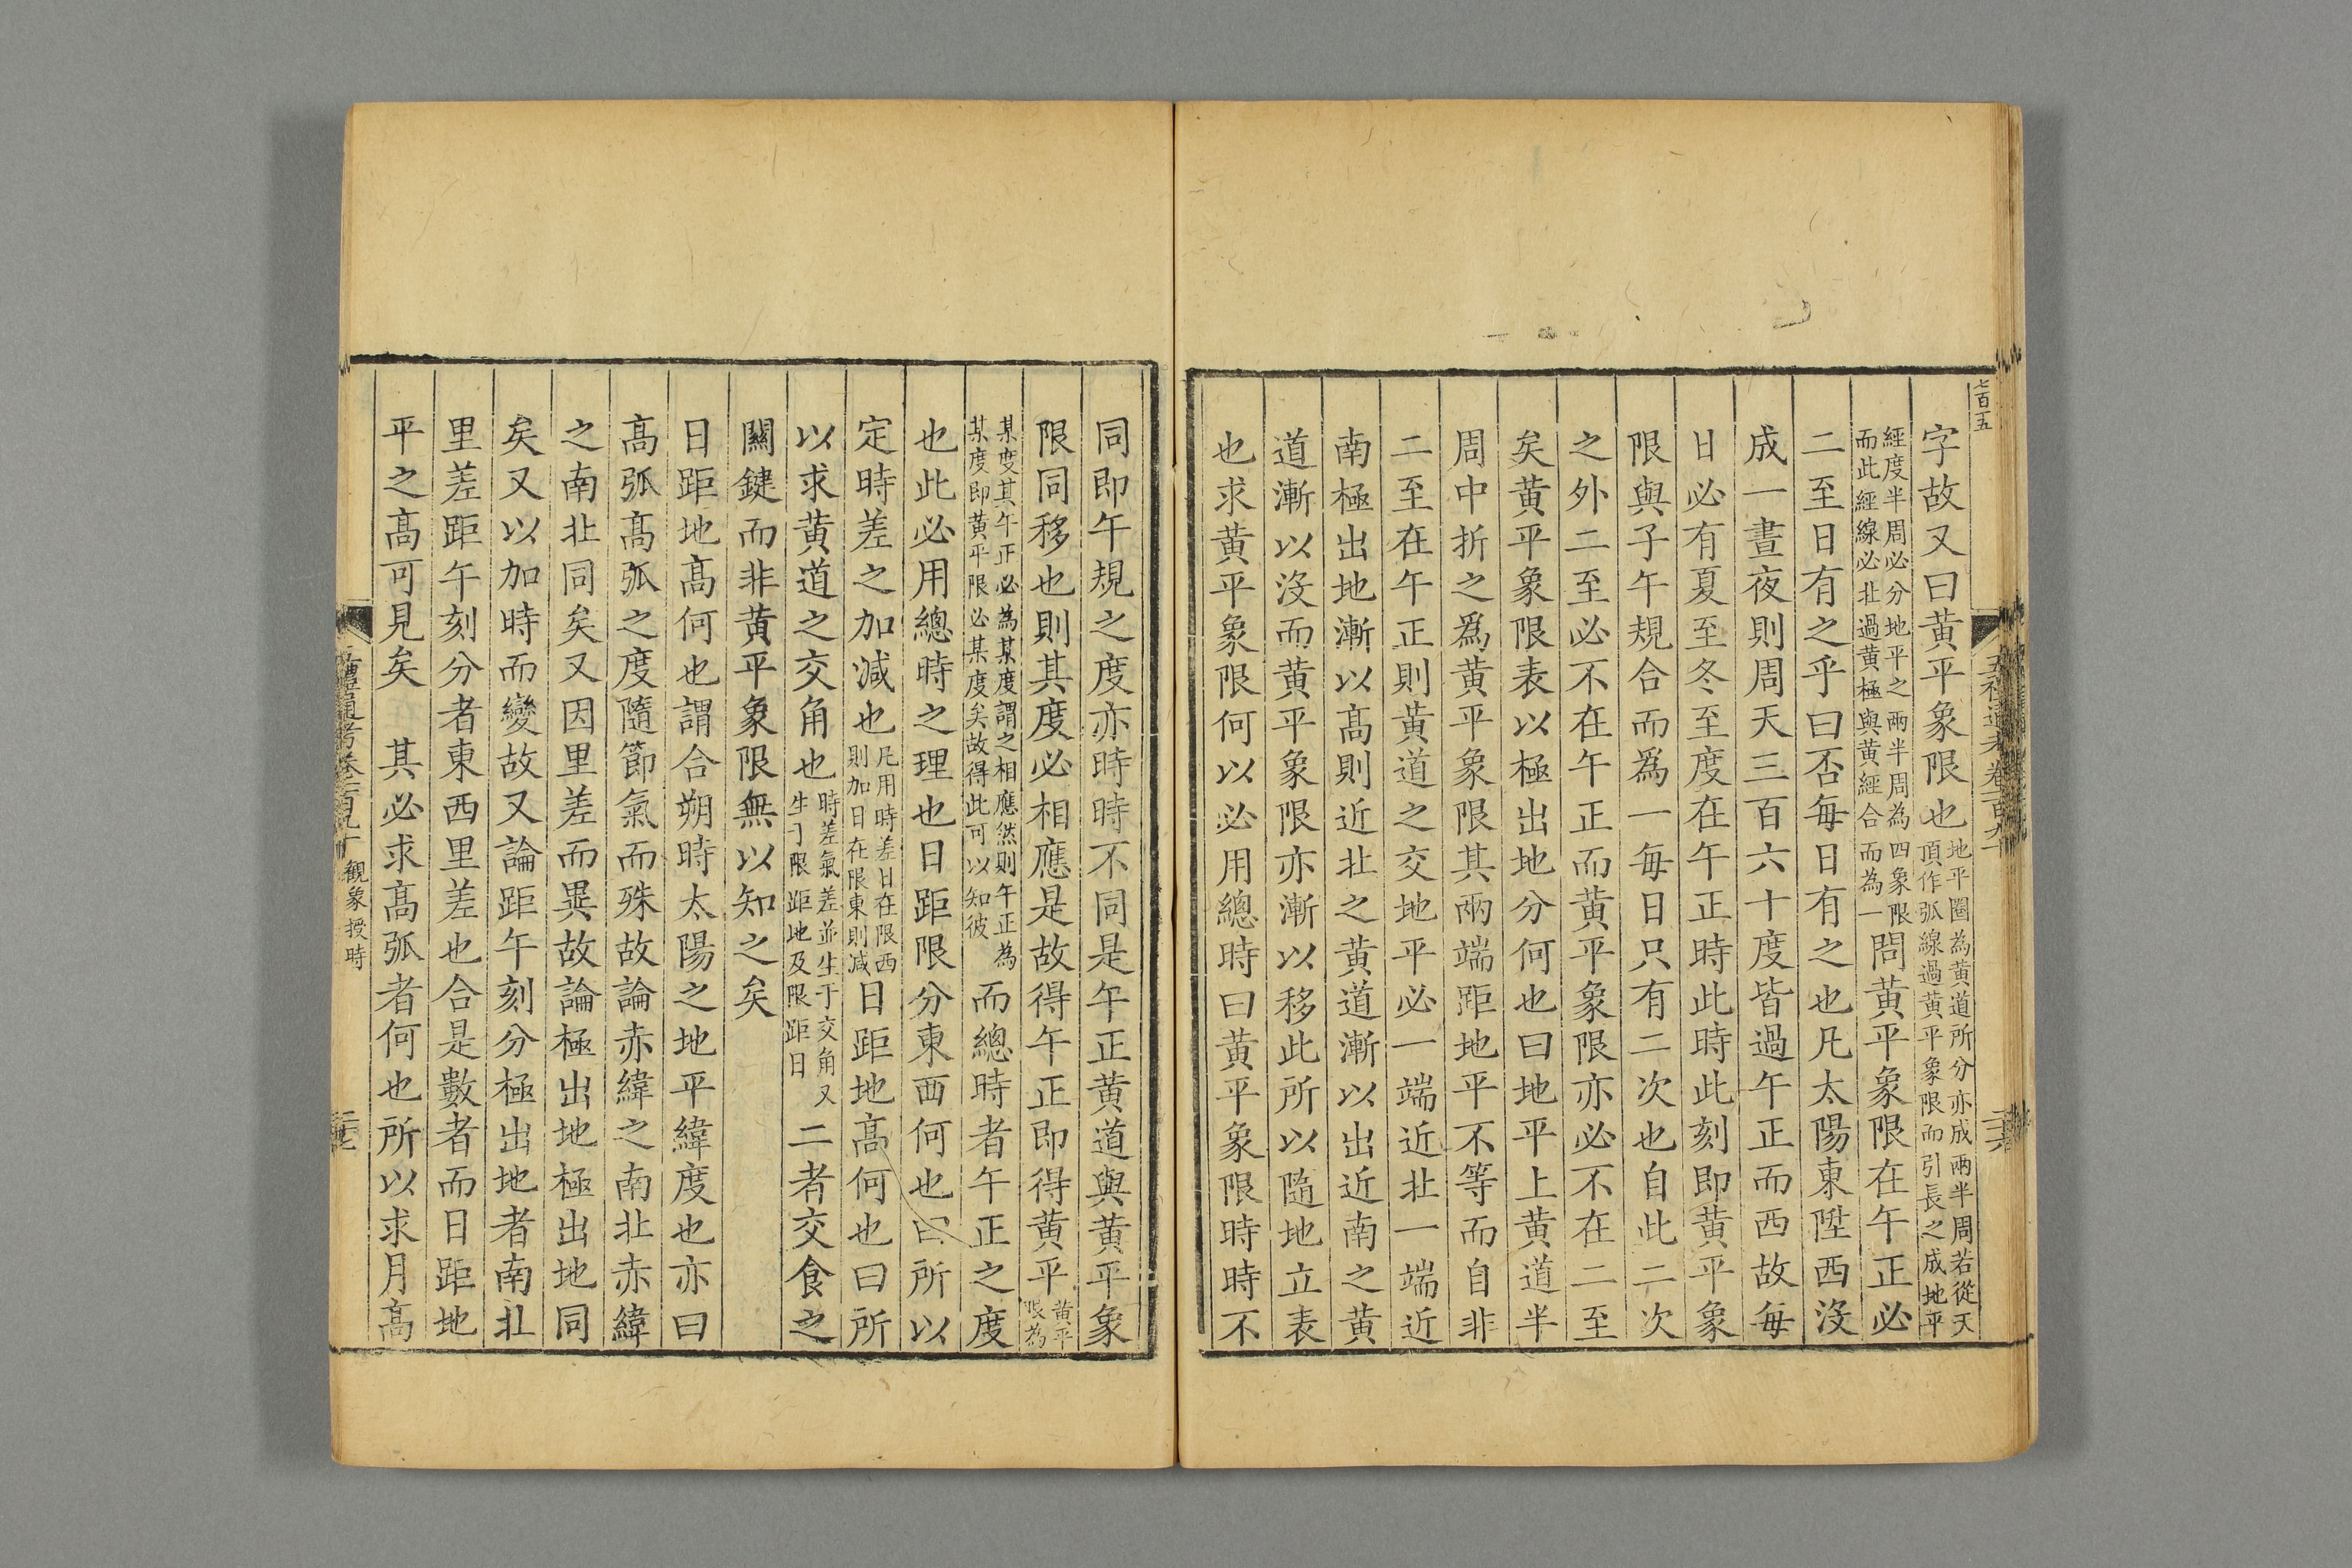 七百五
字故又曰黄平象限也地平圈為黄道所分亦成兩半周若從天頂作弧線過黄平象限而引長之成地平
經度半周必分地平之兩半周為四象限而此經線必北過黄極與黄經合而為一問黄平象限在午正必
二至日有之乎曰否每日有之也凡太陽東陞西没
成一晝夜則周天三百六十度皆過午正而西故每
日必有夏至冬至度在午正時此時此刻即黄平象
限與子午規合而爲一每日只有二次也自此二次
之外二至必不在午正而黄平象限亦必不在二至
矣黄平象限表以極出地分何也曰地平上黄道半
周中折之爲黄平象限其兩端距地平不等而自非
二至在午正則黄道之交地平必一端近北一端近
南極出地漸以髙則近北之黄道漸以出近南之黄
道漸以没而黄平象限亦漸以移此所以隨地立表
也求黄平象限何以必用總時曰黄平象限時時不
同即午規之度亦時時不同是午正黄道與黄平象
限同移也則其度必相應是故得午正即得黄平黄平限為
某度其午正必為某度謂之相應然則午正為某度即黄平限必某度矣故得此可以知彼而總時者午正之度
也此必用總時之理也日距限分東西何也曰所以
定時差之加减也凡用時差日在限西則加日在限東則减日距地髙何也曰所
以求黄道之交角也時差氣差並生于交角又生于限距地及限距日二者交食之
關鍵而非黄平象限無以知之矣
日距地髙何也謂合朔時太陽之地平緯度也亦曰
髙弧髙弧之度隨節氣而殊故論赤緯之南北赤緯
之南北同矣又因里差而異故論極出地極出地同
矣又以加時而變故又論距午刻分極出地者南北
里差距午刻分者東西里差也合是數者而日距地
平之髙可見矣　其必求髙弧者何也所以求月髙
觀象授時